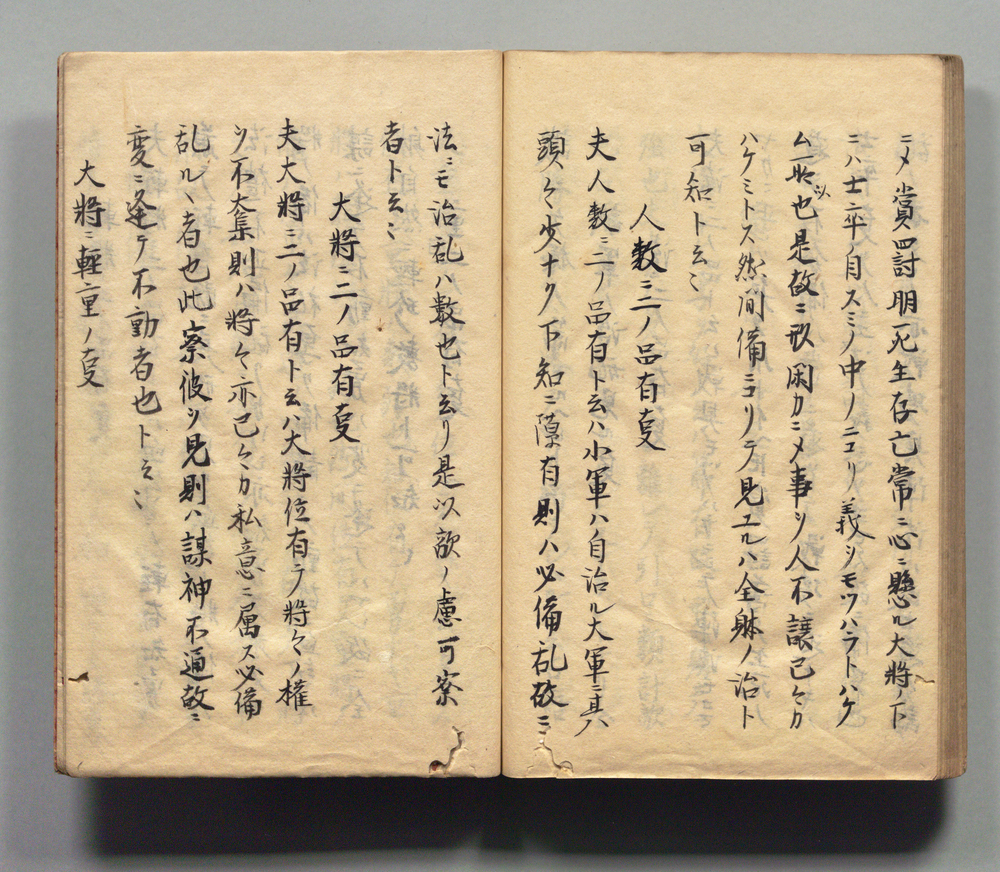 ニメ賞罰明死生存亡常ニ心ニ懸ル大將ノ下
ニハ士卒ノ自スミノ中リニコリ義シモツハラトハゲ
也是故ニ形閑カニメ事シ人不讓己々カ
ハゲミトス然間備ニコリテ見ユルハ全躰ノ治ト
可知ト云々
人數ニ二ノ品有叓
夫人数ニ二ノ品有ト云ハ小軍ハ自治ル大軍ニ其
頭々少ナク下知ニ隙有則ハ必備乱故ニ
法ニモ治乱ハ數也ト云リ是以敵ノ慮可察
者ト云々
大將ニ二ノ品有叓
夫大將ニ二ノ品有ト云ハ大將位有テ將々ノ權
ヲ不奪則ハ將々亦己々カ私意ニ属ス必備
乱ル丶者也此察彼ヲ見則ハ謀神不通故ニ
変ニ逢テ不動者也ト云々
大將ニ輕重ノ叓